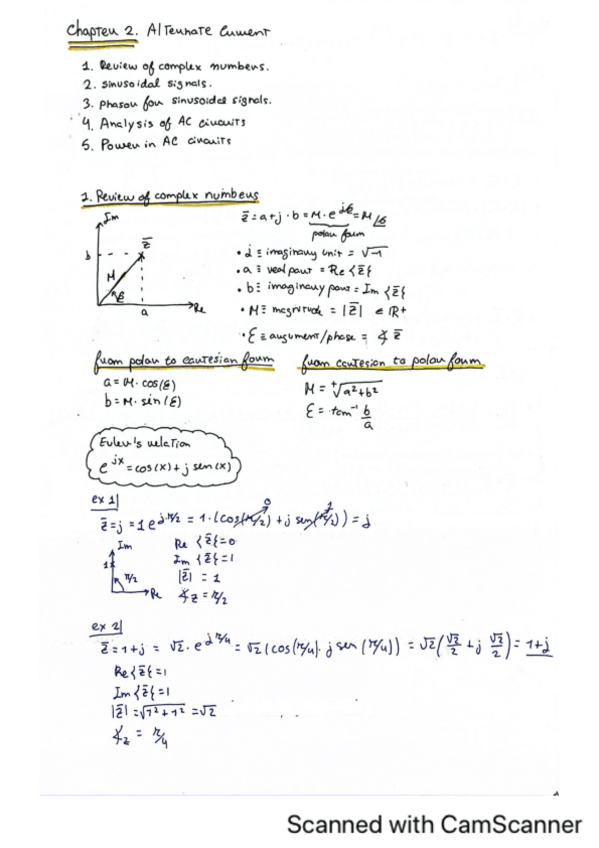 Chapter 2. Alternate Current
1. Review of complex numbers.
2. sinusoidal signals.
3. phasor for sinusoidal signals.
4. Analysis of AC circuits
5. Power in AC circuits
1. Review of complex numbers
Im
b
z̄
M
ε
a
Re
z̄ = a + j · b = M · e^jε = M∠ε
polar form
• j ≡ imaginary unit = √-1
• a ≡ real part = Re {z̄}
• b ≡ imaginary part = Im {z̄}
• M ≡ magnitude = |z̄| ∈ R+
• ε ≡ argument/phase = ∡ z̄
from polar to cartesian form
a = M · cos(ε)
b = M · sin(ε)
from cartesian to polar form
M = +√a²+b²
ε = tan⁻¹ b/a
Euler's relation
e^jx = cos(x) + j sen(x)
ex 1|
z̄ = j = 1 e^jπ/2 = 1 · (cos(π/2) + j sen(π/2)) = j
0
1
Im
1
π/2
Re
Re {z̄} = 0
Im {z̄} = 1
|z̄| = 1
∡z = π/2
ex 2|
z̄ = 1 + j = √2 · e^jπ/4 = √2 (cos(π/4) · j sen (π/4)) = √2 (√2/2 + j √2/2) = 1+j
Re {z̄} = 1
Im {z̄} = 1
|z̄| = √1² + 1² = √2
∡z = π/4
Scanned with CamScanner